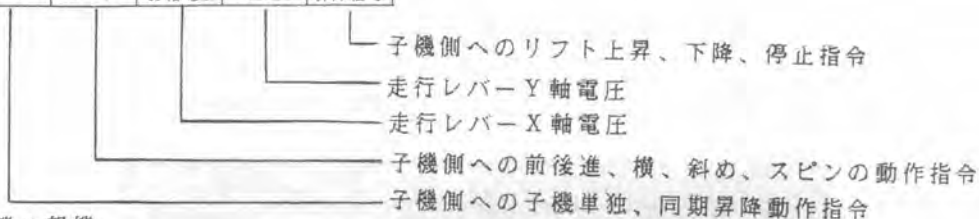 子機側へのリフト上昇、下降、停止指令
走行レバーY軸電圧
走行レバーX軸電圧
子機側への前後進、横、斜め、スピンの動作指令
子機側への子機単独、同期昇降動作指令